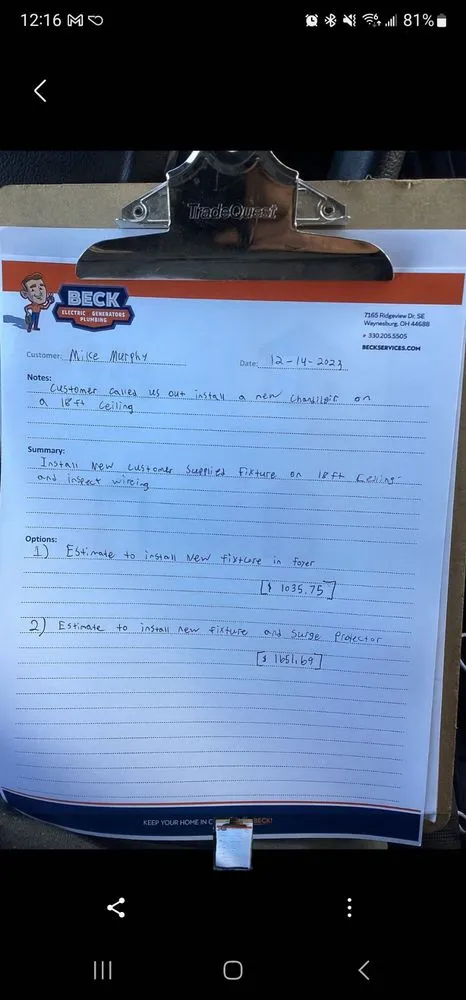 12:16
81%
TradeQuest
BECK
ELECTRIC GENERATORS
PLUMBING
7165 Ridgeview Dr. SE
Waynesburg, OH 44688
330.205.5505
BECKSERVICES.COM
Customer: Mike Murphy
Date: 12-14-2023
Notes:
Customer called us out install a new chandilair on
a 18ft ceiling
Summary:
Install New customer Supplied fixture on 18ft Ceiling
and inspect wireing
Options:
1) Estimate to install New fixture in foyer
[$ 1035.75]
2) Estimate to install new fixture and Surge Protector
[$ 1651.69]
KEEP YOUR HOME IN BECK!